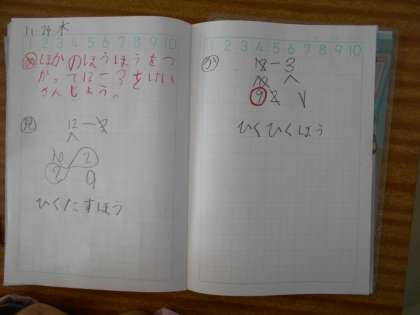 11.24 水
2 3 4 5 6 7 8 9 10
め ほかのほうほうをつ
かって12-3をけい
さんしよう。
12-3
10 2
7 9
ひくたすほう
1 2 3 4 5 6 7 8 9 10
12-3
10
9 2 1
ひくひくほう